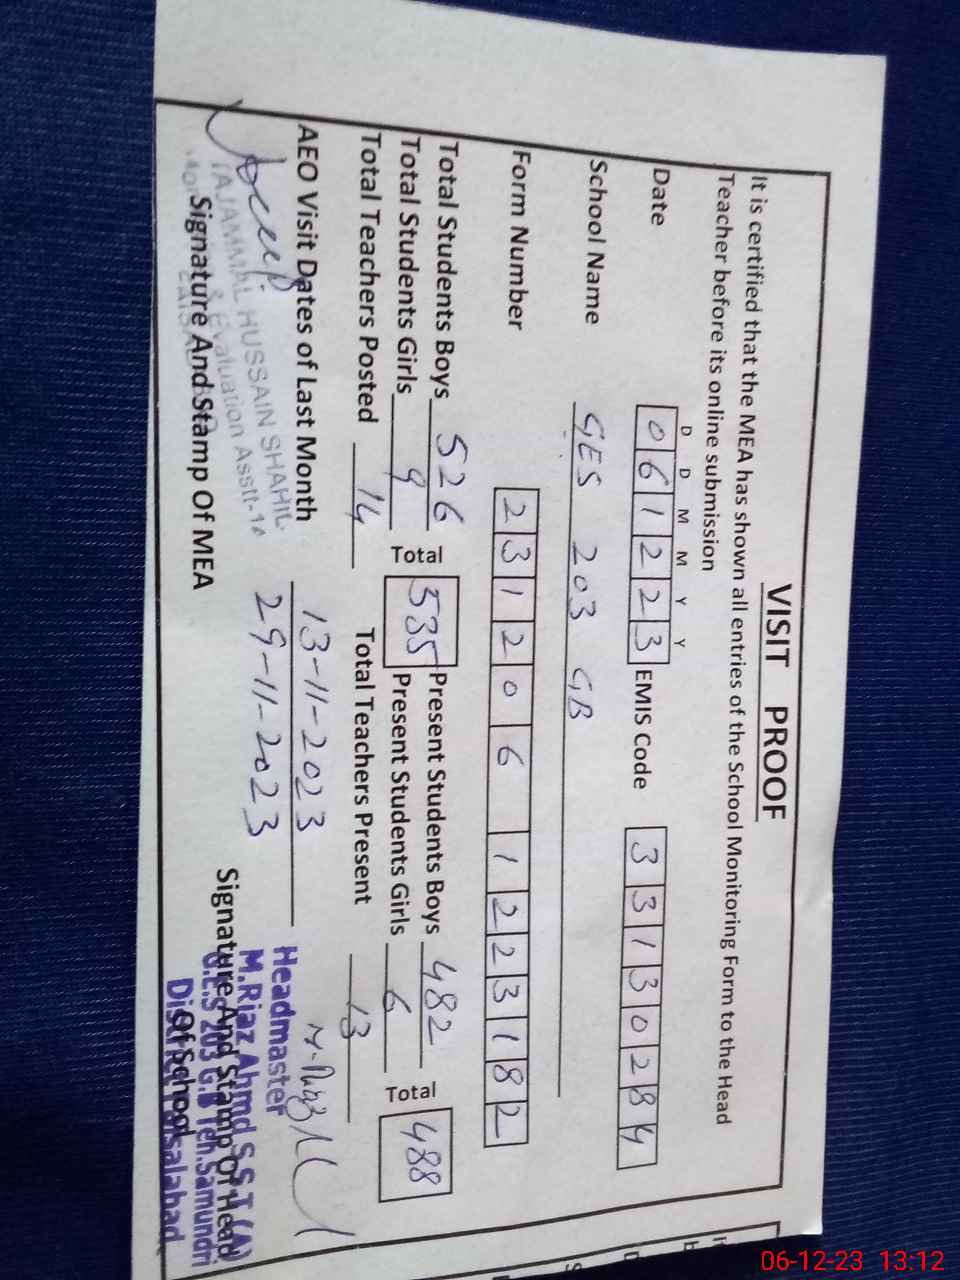 VISIT PROOF
It is certified that the MEA has shown all entries of the School Monitoring Form to the Head
Teacher before its online submission
D D M M Y Y
Date 0 6 1 2 2 3 EMIS Code 3 3 1 3 0 2 8 4
School Name GES 203 GB
Form Number 2 3 1 2 0 6 1 2 2 3 1 8 2
Total Students Boys 526 Total 535 Present Students Boys 482 Total 488
Total Students Girls 9 Present Students Girls 6
Total Teachers Posted 14 Total Teachers Present 13
AEO Visit Dates of Last Month 13-11-2023
29-11-2023
TAJAMMAL HUSSAIN SHAHID
& Evaluation Asstt-10
Signature And Stamp Of MEA
Headmaster
M.Riaz Ahmd S.S.T (A)
G.E.S 203 G.B Teh.Samundri
District Faisalabad
Signature And Stamp Of Head
Of School
06-12-23 13:12